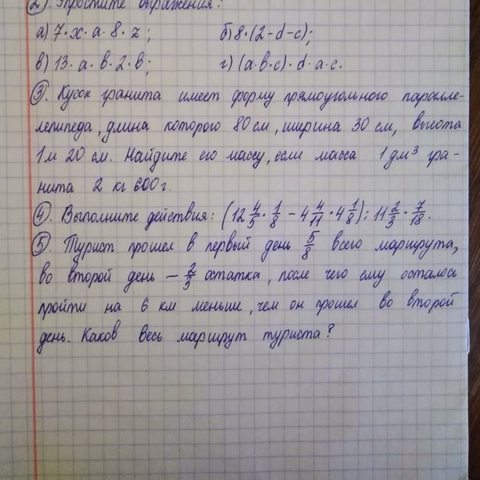 2) Упростите выражения:
а) 7·x·a·8·z; б) 8·(2-d-c);
в) 13·a·b·2·b; г) (a·b·c)·d·a·c.
3) Кусок гранита имеет форму прямоугольного паралле-
лепипеда, длина которого 80 см, ширина 30 см, высота
1 м 20 см. Найдите его массу, если масса 1 дм³ гра-
нита 2 кг 600 г.
4) Выполните действия: (12 4/5 · 1/8 - 4 4/11 · 4 1/8) : 11 2/3 · 7/18.
5) Турист прошел в первый день 5/8 всего маршрута,
во второй день - 2/3 остатка, после чего ему осталось
пройти на 6 км меньше, чем он прошел во второй
день. Каков весь маршрут туриста?